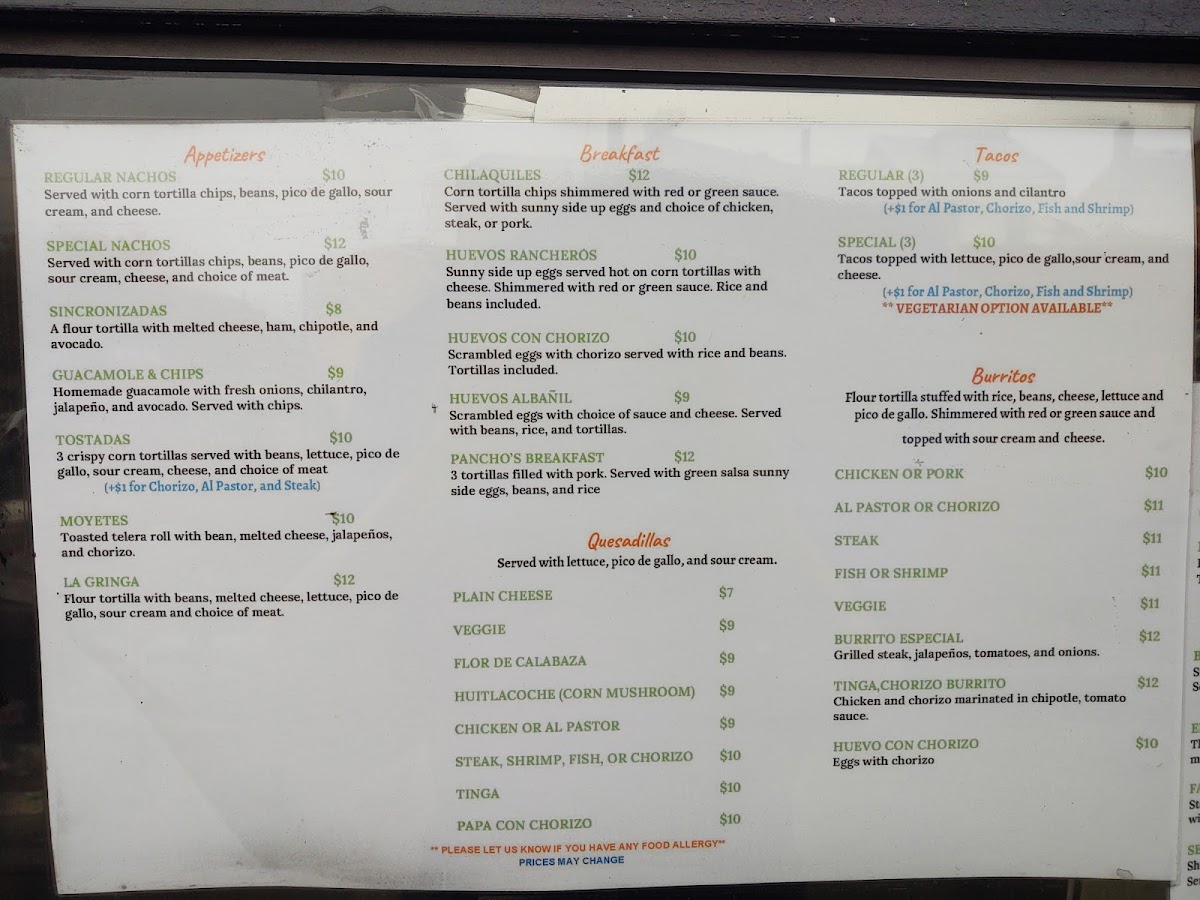 Appetizers
REGULAR NACHOS $10
Served with corn tortilla chips, beans, pico de gallo, sour
cream, and cheese.
SPECIAL NACHOS $12
Served with corn tortillas chips, beans, pico de gallo,
sour cream, cheese, and choice of meat.
SINCRONIZADAS $8
A flour tortilla with melted cheese, ham, chipotle, and
avocado.
GUACAMOLE & CHIPS $9
Homemade guacamole with fresh onions, chilantro,
jalapeño, and avocado. Served with chips.
TOSTADAS $10
3 crispy corn tortillas served with beans, lettuce, pico de
gallo, sour cream, cheese, and choice of meat
(+$1 for Chorizo, Al Pastor, and Steak)
MOYETES $10
Toasted telera roll with bean, melted cheese, jalapeños,
and chorizo.
LA GRINGA $12
Flour tortilla with beans, melted cheese, lettuce, pico de
gallo, sour cream and choice of meat.
Breakfast
CHILAQUILES $12
Corn tortilla chips shimmered with red or green sauce.
Served with sunny side up eggs and choice of chicken,
steak, or pork.
HUEVOS RANCHEROS $10
Sunny side up eggs served hot on corn tortillas with
cheese. Shimmered with red or green sauce. Rice and
beans included.
HUEVOS CON CHORIZO $10
Scrambled eggs with chorizo served with rice and beans.
Tortillas included.
HUEVOS ALBAÑIL $9
Scrambled eggs with choice of sauce and cheese. Served
with beans, rice, and tortillas.
PANCHO'S BREAKFAST $12
3 tortillas filled with pork. Served with green salsa sunny
side eggs, beans, and rice
Quesadillas
Served with lettuce, pico de gallo, and sour cream.
PLAIN CHEESE $7
VEGGIE $9
FLOR DE CALABAZA $9
HUITLACOCHE (CORN MUSHROOM) $9
CHICKEN OR AL PASTOR $9
STEAK, SHRIMP, FISH, OR CHORIZO $10
TINGA $10
PAPA CON CHORIZO $10
** PLEASE LET US KNOW IF YOU HAVE ANY FOOD ALLERGY**
PRICES MAY CHANGE
Tacos
REGULAR (3) $9
Tacos topped with onions and cilantro
(+$1 for Al Pastor, Chorizo, Fish and Shrimp)
SPECIAL (3) $10
Tacos topped with lettuce, pico de gallo,sour cream, and
cheese.
(+$1 for Al Pastor, Chorizo, Fish and Shrimp)
** VEGETARIAN OPTION AVAILABLE**
Burritos
Flour tortilla stuffed with rice, beans, cheese, lettuce and
pico de gallo. Shimmered with red or green sauce and
topped with sour cream and cheese.
CHICKEN OR PORK $10
AL PASTOR OR CHORIZO $11
STEAK $11
FISH OR SHRIMP $11
VEGGIE $11
BURRITO ESPECIAL $12
Grilled steak, jalapeños, tomatoes, and onions.
TINGA,CHORIZO BURRITO $12
Chicken and chorizo marinated in chipotle, tomato
sauce.
HUEVO CON CHORIZO $10
Eggs with chorizo